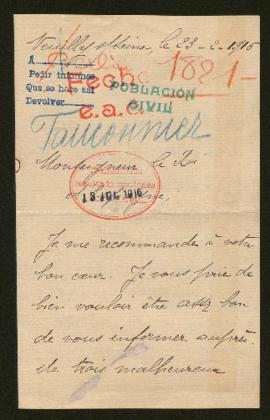 Neuilly s/Seine, le 23-2-1916
A
Pedir informes
Que se hace así
Devolver
Fecho
e.a.c.
1821-
POBLACIÓN
CIVIL
Monseigneur le Roi
13 JUL 1916
Je me recommande à votre
bon cœur. Je vous prie de
bien vouloir être assez bon
de vous informer auprès
de trois malheureux